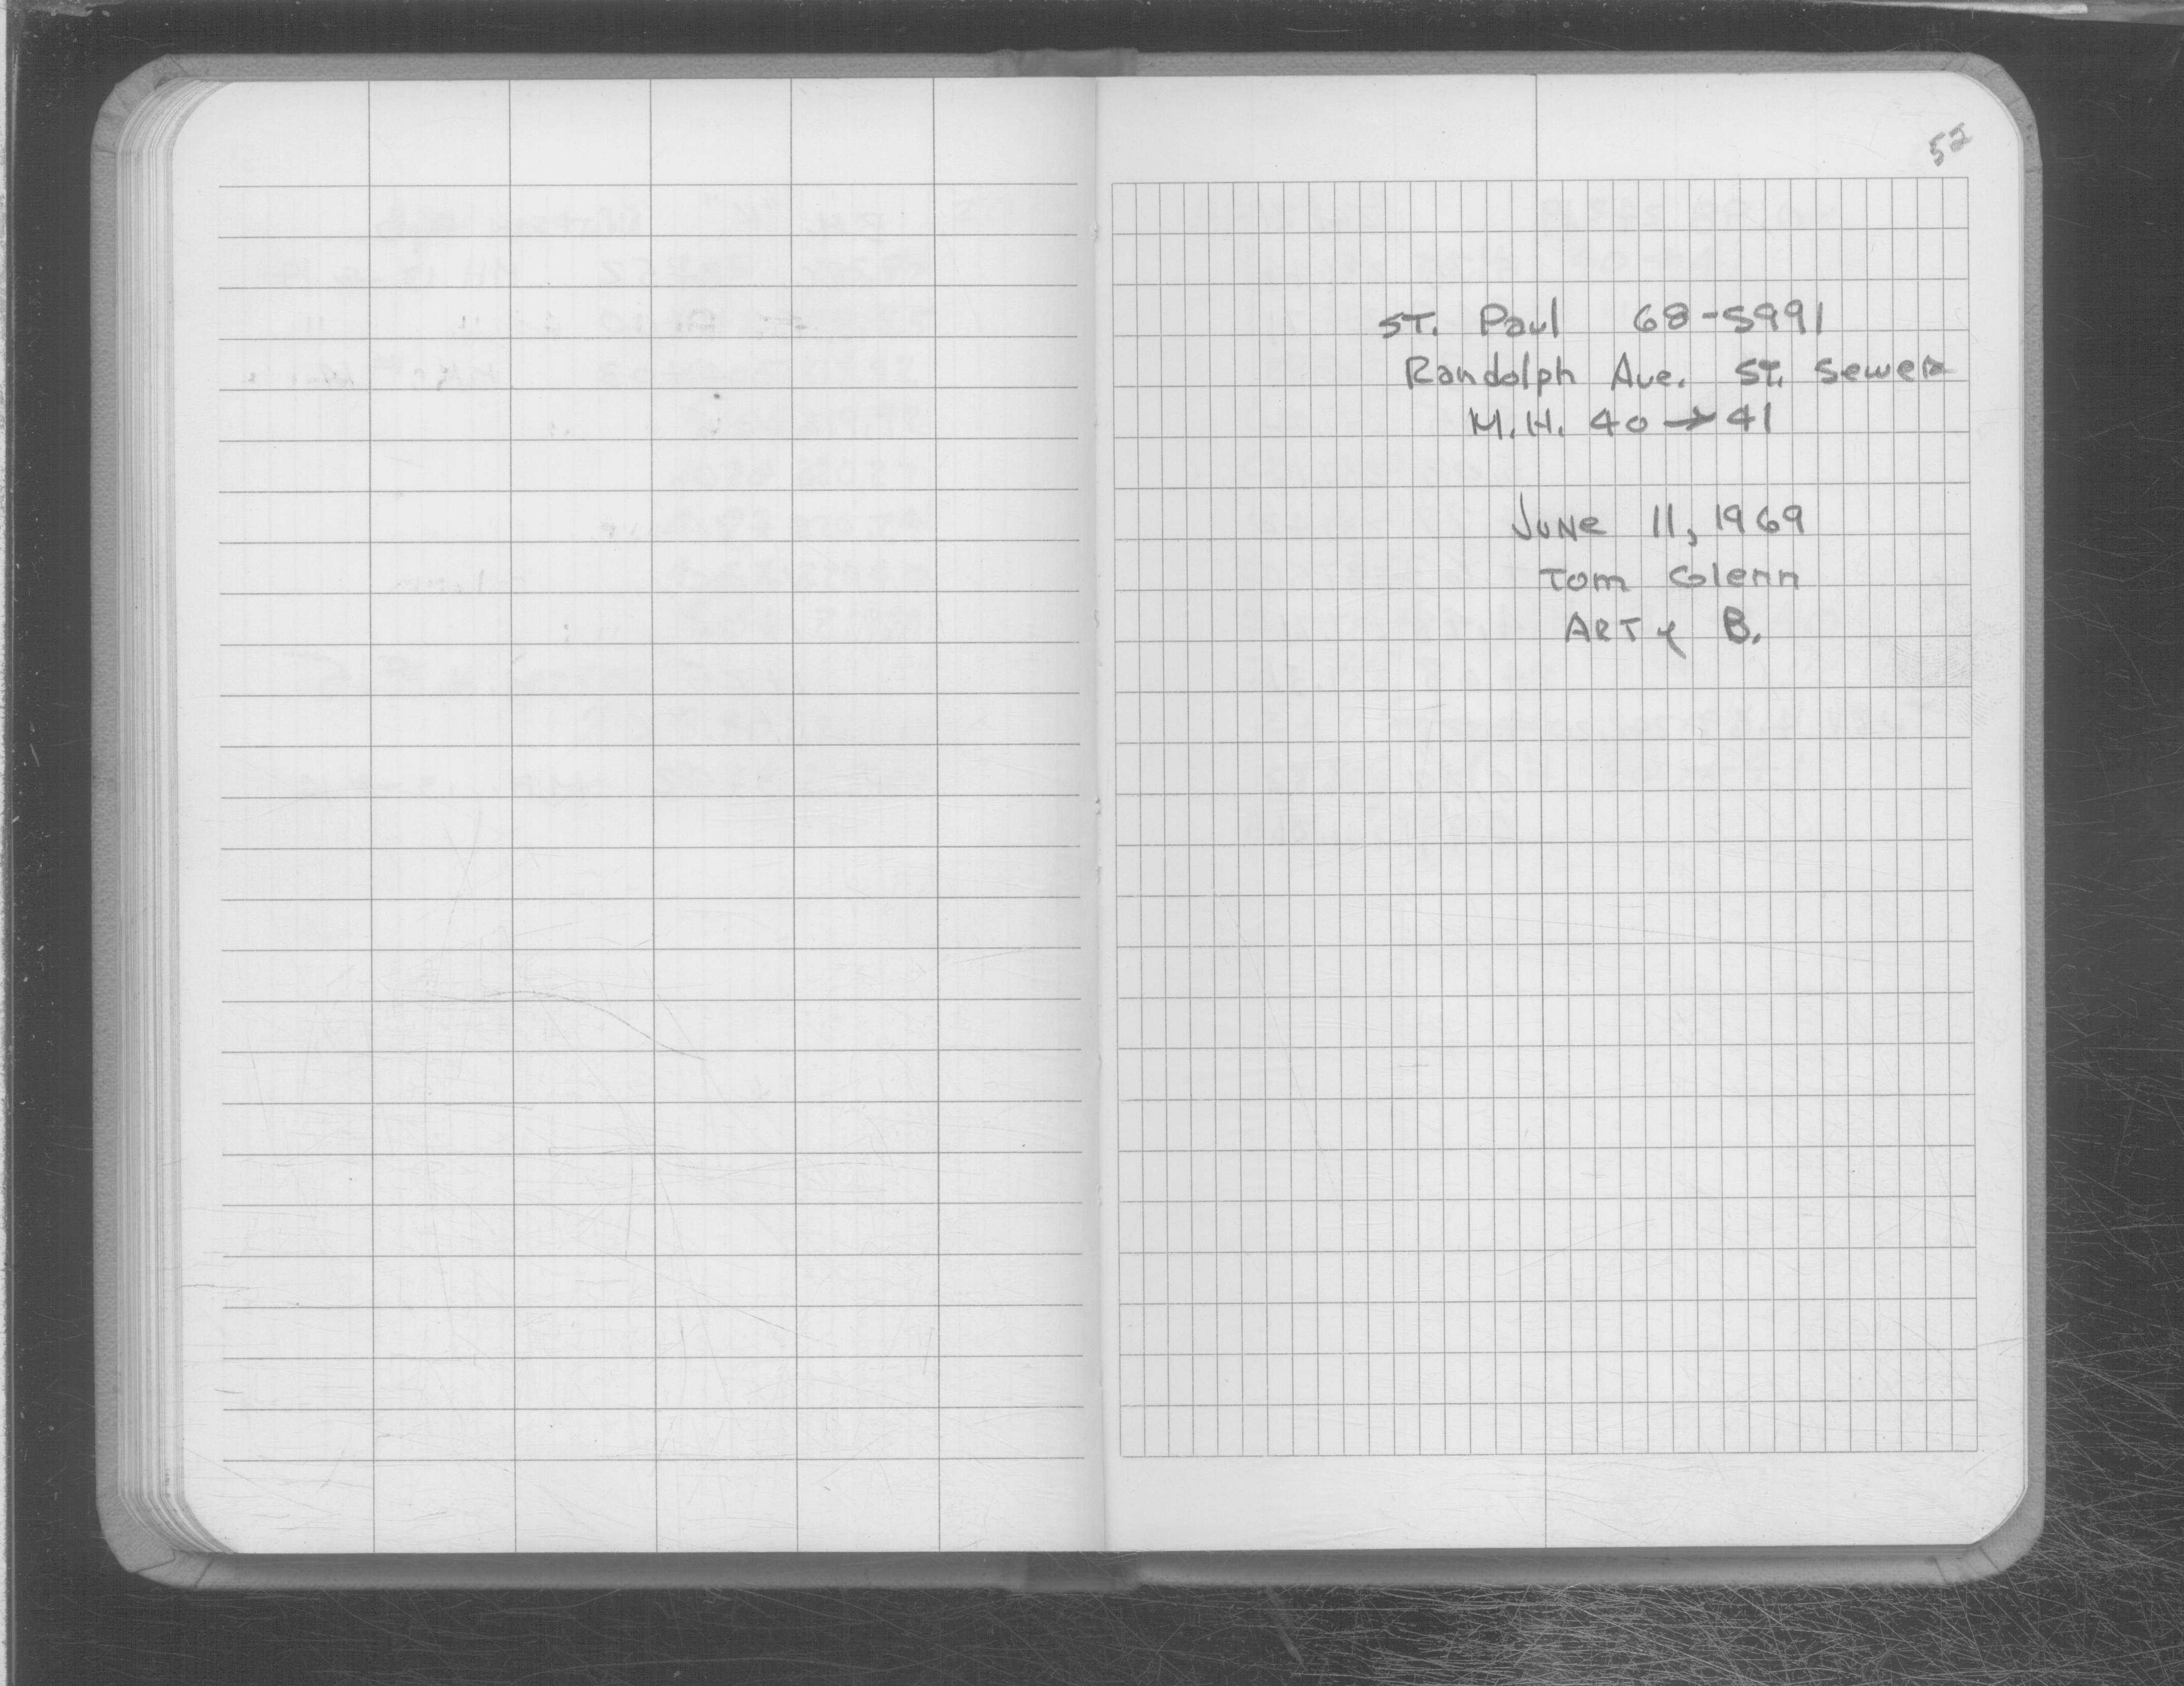 52
ST. Paul 68-5991
Randolph Ave. ST. Sewer
M.H. 40 → 41
June 11, 1969
Tom Glenn
ART & B.